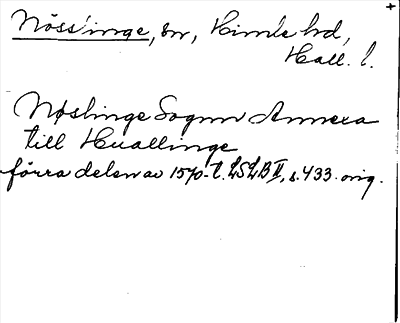 Nösslinge, sn, Himle hd,
Hall. l.
Nøslinge Sognn Annexa
till Huallinge
förra delen av 1570-t. LSLB II, s. 433. orig.